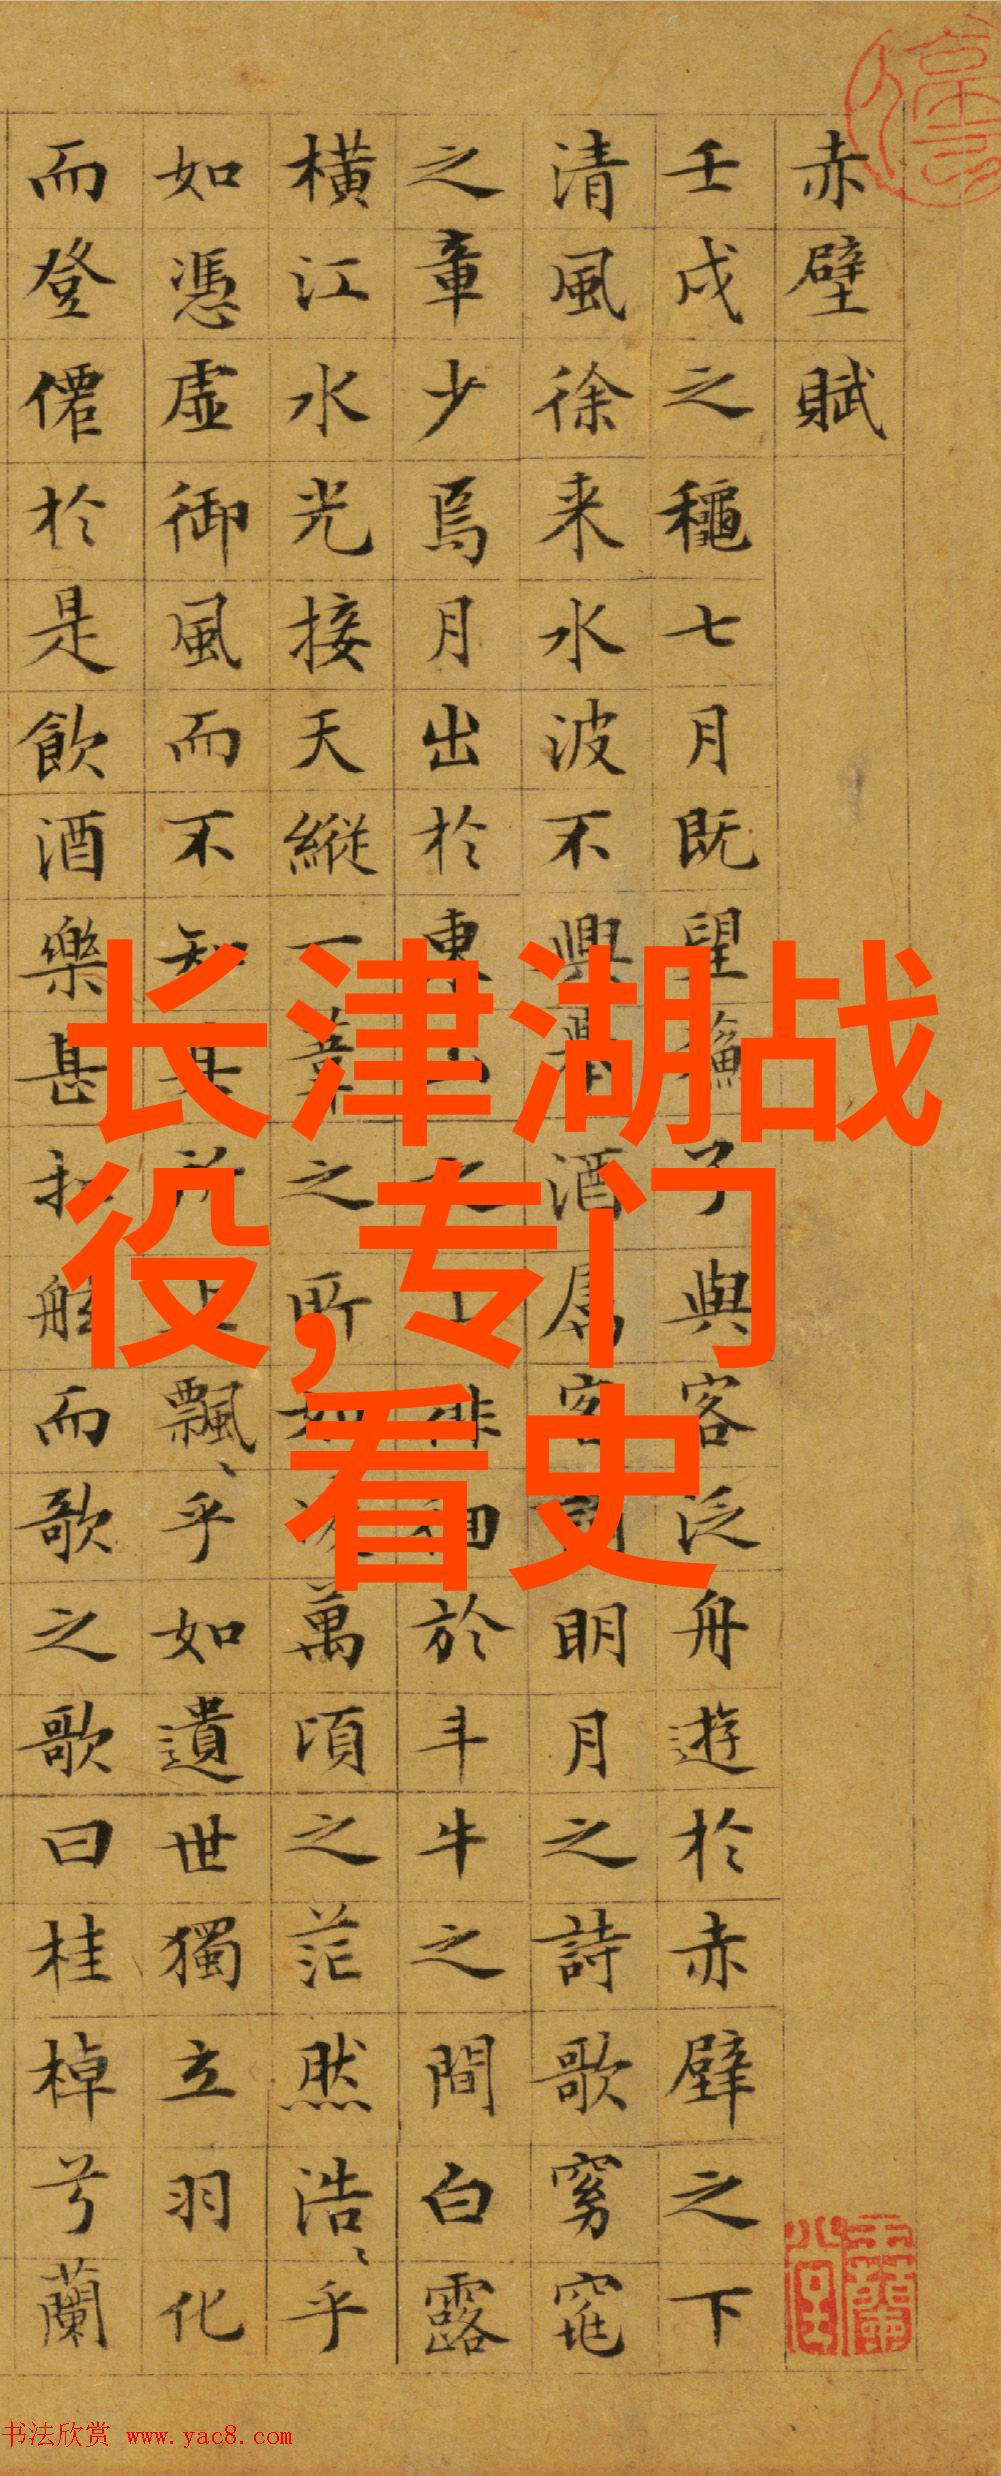 赤壁賦
壬戌之穐七月既望蘓子與客泛舟遊於赤壁之下
清風徐来水波不興舉酒屬客誦明月之詩歌窈窕
之章少焉月出於東山之上徘徊於斗牛之間白露
横江水光接天縦一葦之所如凌萬頃之茫然浩、乎
如憑虚御風而不知其所止飄、乎如遺世獨立羽化
而登僊於是飲酒樂甚扣舷而歌之歌曰桂棹兮蘭
长津湖战
役,专门
看史
书法欣赏 www.yac8.com